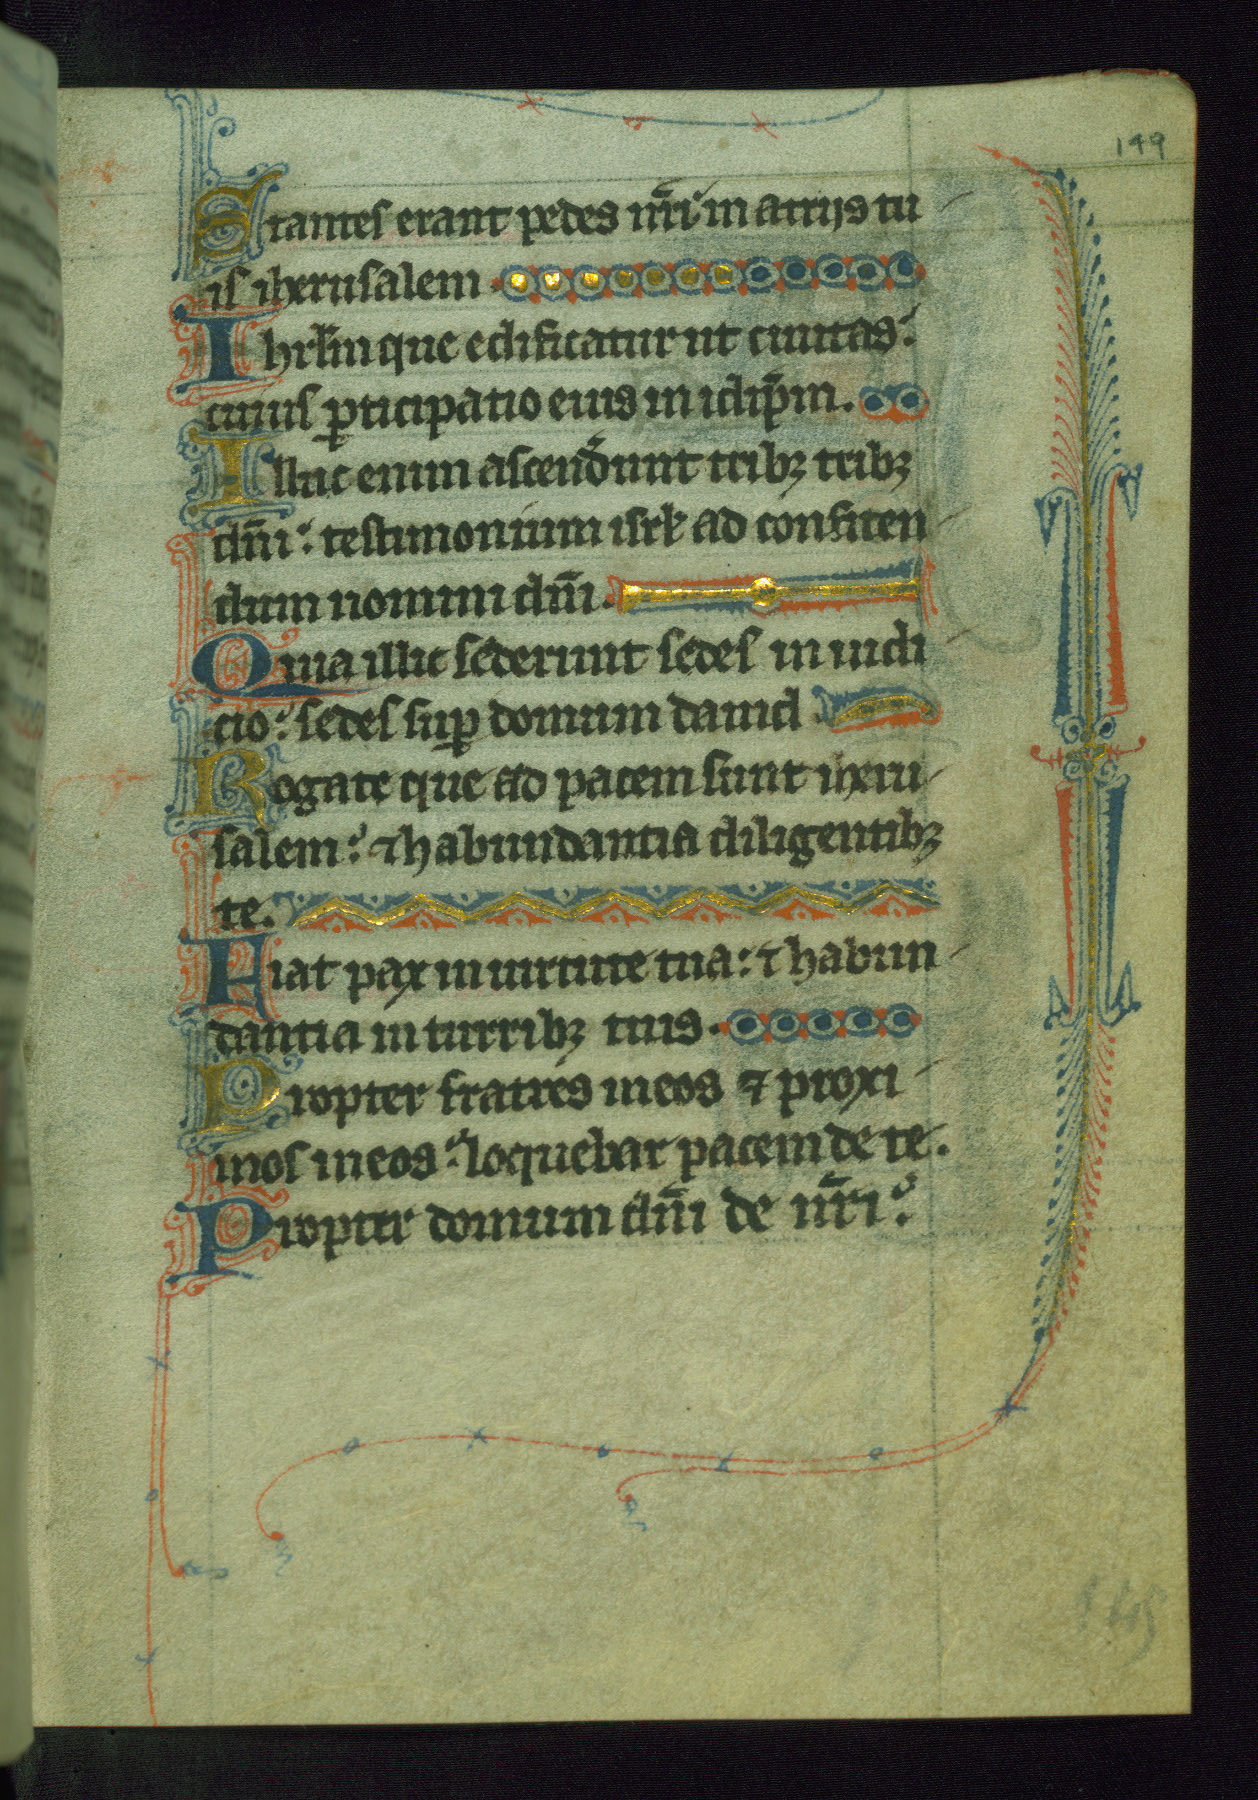 149
Stantes erant pedes nr̄i in atrijs tu
is iherusalem.
Ihrlm̄ que edificatur ut ciuitas:
cuius ꝑticipatio eius in idip̄m.
Illuc enim ascenđunt tribꝫ tribꝫ
dn̄i: testimonium isrł ad confiten
dum nomini dn̄i.
Quia illic sederunt sedes in iudi
cio: sedes suꝑ domum dauid
Rogate que ad pacem sunt iheru
salem: ⁊ habundantia diligentibꝫ
te.
Fiat pax in uirtute tua: ⁊ habun
dantia in turribꝫ tuis.
Propter fratres meos ⁊ proxi
mos meos: loquebar pacem de te.
Propter domum dn̄i de nr̄i: